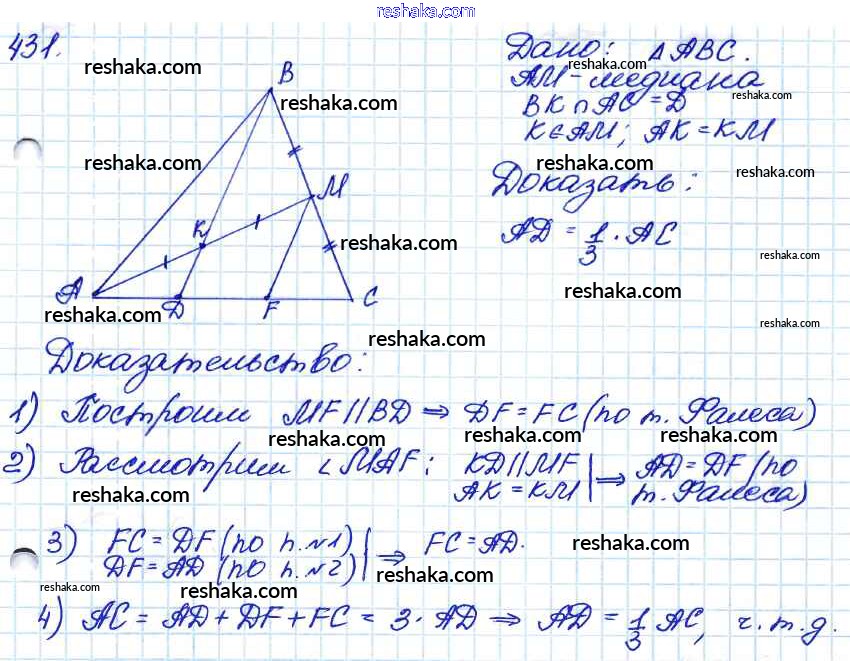 reshaka.com
431.
reshaka.com
B
reshaka.com
reshaka.com
M
K
reshaka.com
A
D
F
C
reshaka.com
Дано: △ABC.
reshaka.com
AM – медиана
reshaka.com
BK ∩ AC = D
K ∈ AM; AK = KM
reshaka.com
reshaka.com
Доказать:
AD = 1/3 · AC
reshaka.com
reshaka.com
reshaka.com
reshaka.com
Доказательство:
1) Построим MF || BD ⇒ DF = FC (по т. Фалеса)
reshaka.com
reshaka.com
reshaka.com
2) Рассмотрим ∠MAF: KD || MF | ⇒ AD = DF (по
AK = KM | т. Фалеса)
reshaka.com
3) FC = DF (по п. №1) | ⇒ FC = AD.
DF = AD (по п. №2) |
reshaka.com
reshaka.com
reshaka.com
reshaka.com
reshaka.com
4) AC = AD + DF + FC = 3 · AD ⇒ AD = 1/3 AC, ч.т.д.